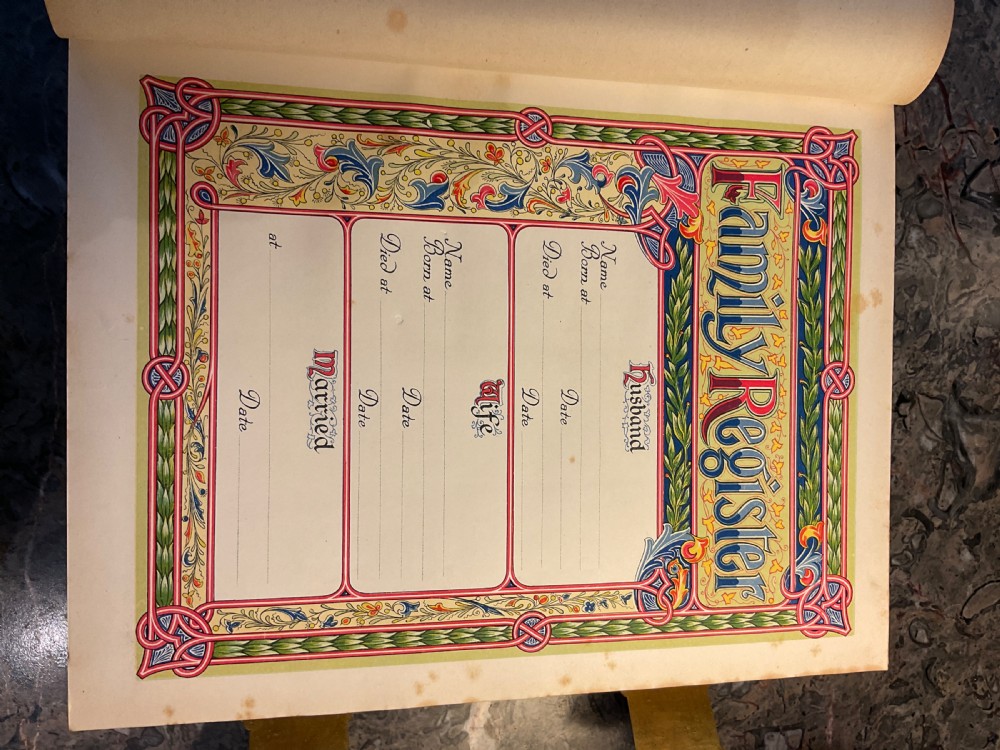 Family Register
Husband
Name
Born at Date
Died at Date
Wife
Name
Born at Date
Died at Date
Married
at Date